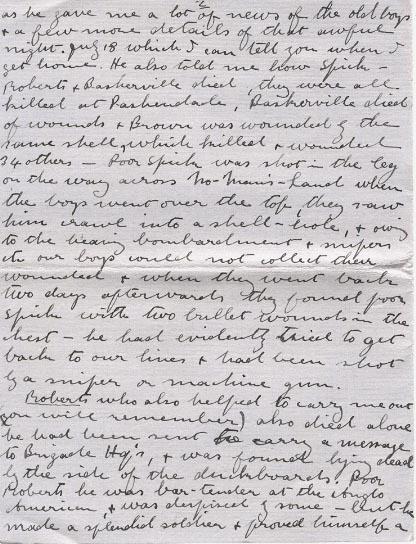 as he gave me a lot of news of the old boys
& a few more details of that awful
night. Aug 18 which I can tell you when I
get home. He also told me how Spick -
Roberts & Baskerville died, they were all
killed at Pashendale, Baskerville died
of wounds & Brown was wounded by the
same shell, which killed & wounded
34 others - Poor Spick was shot in the leg
on the way across No-Man's-Land when
the boys went over the top, they saw
him crawl into a shell-hole, & owing
to the heavy bombardment & snipers
our boys could not collect their
wounded & when they went back
two days afterwards they found poor
Spick with two bullet wounds in the
chest - he had evidently tried to get
back to our lines & had been shot
by a sniper or machine gun.
Roberts who also helped to carry me out
(you will remember) also died alone
he had been sent to carry a message
to Brigade Hq's, & was found lying dead
by the side of the duckboards. Poor
Roberts, he was bar-tender at the Anglo
American, & was despised by some - but he
made a splendid soldier & proved himself a